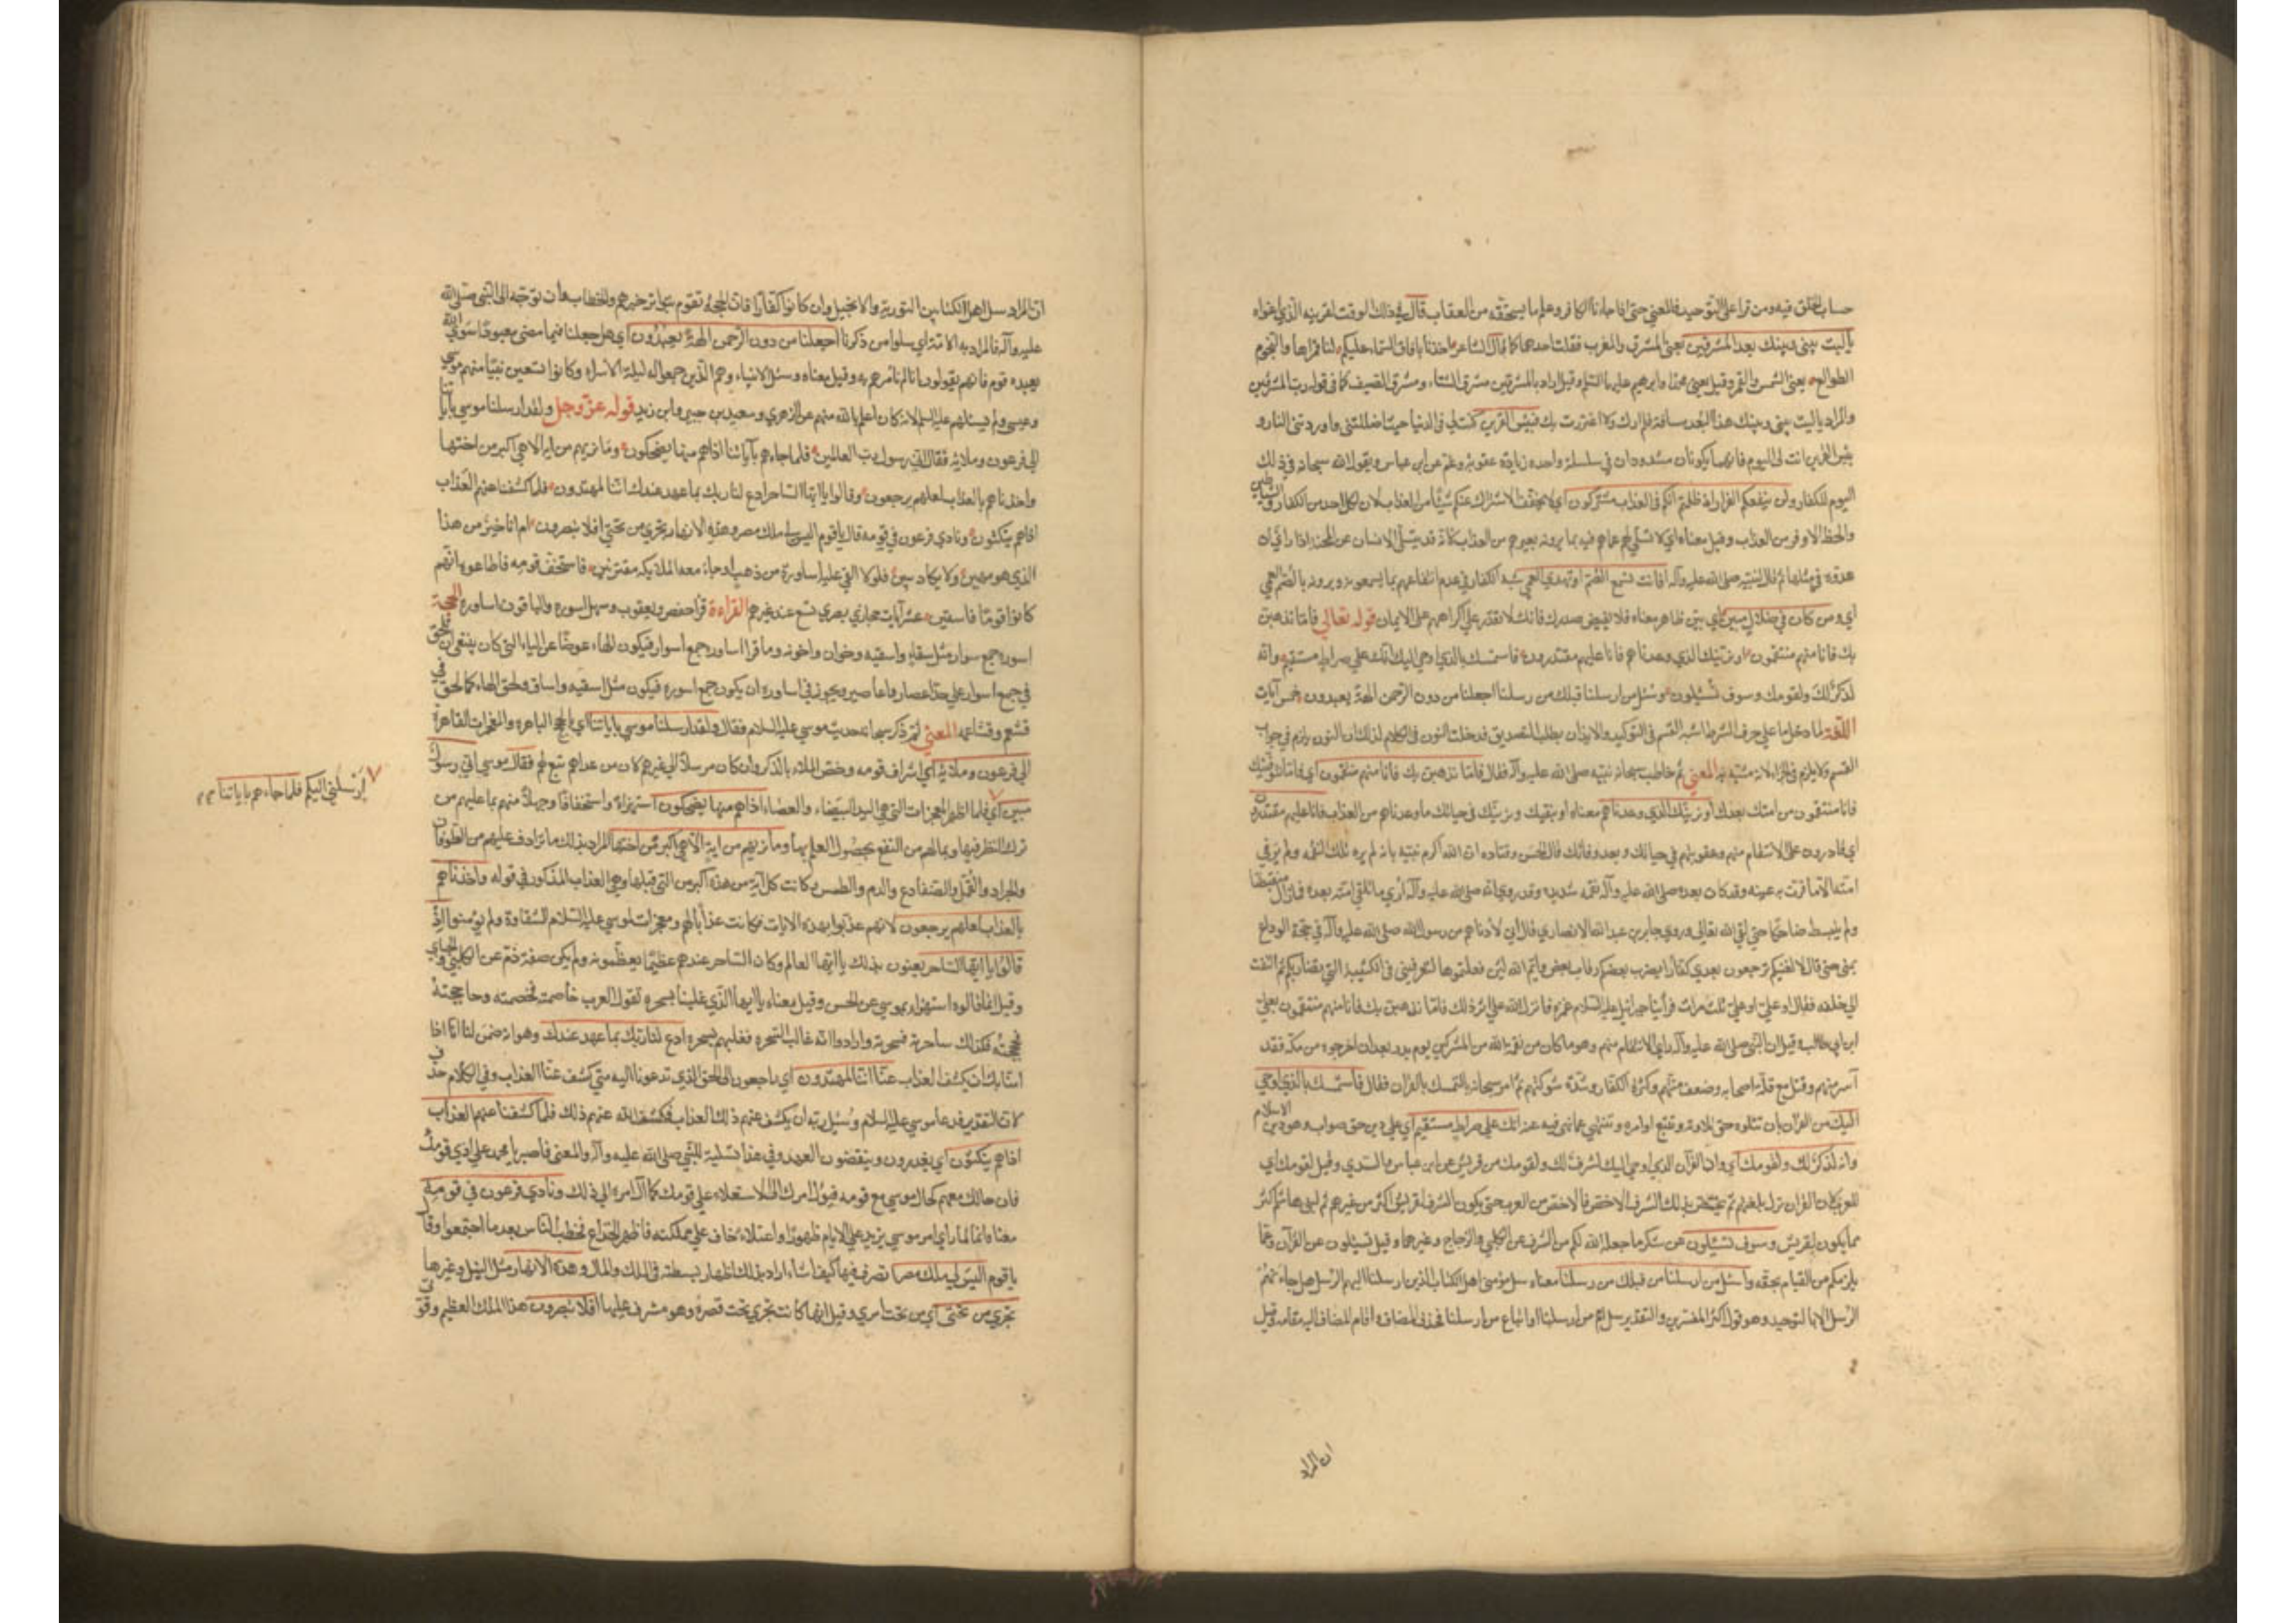 حساب الخلق فيه ومن قرأ على التوحيد فالمعنى حتى اذا جاءنا الكافر وعلم ما يستحقه من العقاب قال في ذلك الوقت لقرينه الذي اغواه
يا ليت بيني وبينك بعد المشرقين يعني المشرق والمغرب فغلب احدهما كما قال الشاعر اخذنا بآفاق السماء عليكم لنا قمراها والنجوم
الطوالع يعني الشمس والقمر وقيل يعني محمدا وابرهيم عليهما السلم وقيل اراد بالمشرقين مشرق الشتاء ومشرق الصيف كما في قوله رب المشرقين
والمراد يا ليت بيني وبينك هذا البعد مسافة فلم ارك ولا اغتررت بك فبئس القرين كنت لي في الدنيا حيث اضللتني واوردتني النار و
بئس القرين انت لي اليوم فانهما يكونان مشدودان في سلسلة واحدة زيادة عقوبة وغم عن ابن عباس ويقول الله سبحانه في ذلك
اليوم للكفار ولن ينفعكم اليوم اذ ظلمتم انكم في العذاب مشتركون اي لا يخفف الاشتراك عنكم شيئا من العذاب لان لكل احد من الكفار والشياطين
والحظ الاوفر من العذاب وقيل معناه اي لا تسلي لهم عما هم فيه بما يرونه بغيرهم من العذاب لانه قد يتسلى الانسان عن المحنة اذا رأى ان
عدوه في مثلها ثم قال لنبيه صلى الله عليه وآله افانت تسمع الصم او تهدي العمي شبه الكفار في عدم انتفاعهم بما يسمعونه ويرونه بالصم العمي
اي ومن كان في ضلال مبين اي بين ظاهر معناه فلا يضيقن صدرك فانك لا تقدر على اكراههم على الايمان قوله تعالى فاما نذهبن
بك فانا منهم منتقمون او نرينك الذي وعدناهم فانا عليهم مقتدرون فاستمسك بالذي اوحي اليك انك على صراط مستقيم وانه
لذكر لك ولقومك وسوف تسئلون وسئل من ارسلنا قبلك من رسلنا اجعلنا من دون الرحمن الهة يعبدون خمس آيات
اللغة لما دخل ما على حرف الشرط اشبه القسم في التوكيد والايذان بطلب التصديق فدخلت النون في الكلام لذلك لان النون يلزم في جواب
القسم ولا يلزم في الجزاء لانه مشبه به المعنى ثم خاطب سبحانه نبيه صلى الله عليه وآله فقال فاما نذهبن بك فانا منهم منتقمون اي فاما نتوفينك
فانا منتقمون من امتك بعدك او نرينك الذي وعدناهم معناه او نبقيك ونرينك في حياتك ما وعدناهم من العذاب فانا عليهم مقتدرون
اي قادرون على الانتقام منهم وعقوبتهم في حياتك وبعد وفاتك قال الحسن وقتادة ان الله اكرم نبيه بان لم يره تلك النقمة ولم ير في
امته الا ما قرت به عينه وقد كان بعده صلى الله عليه وآله نقمة شديدة وقد روي انه صلى الله عليه وآله أري ما تلقى امته بعده فما زال منقبضا
ولم ينبسط ضاحكا حتى لقي الله تعالى وروى جابر بن عبد الله الانصاري قال اني لأدناهم من رسول الله صلى الله عليه وآله في حجة الوداع
بمنى حتى قال لا الفينكم ترجعون بعدي كفارا يضرب بعضكم رقاب بعض وايم الله لئن فعلتموها لتعرفنني في الكتيبة التي تضاربكم ثم التفت
الى خلفه فقال او علي او علي ثلث مرات فرأينا جبرائيل عليه السلام غمزه فانزل الله على اثر ذلك فاما نذهبن بك فانا منهم منتقمون بعلي
ابن ابي طالب وقيل ان النبي صلى الله عليه وآله رأى الانتقام منهم وهو ما كان من نقمة الله من المشركين يوم بدر بعد ان اخرجوه من مكة فقد
أسر منهم وقتل مع قلة اصحابه وضعف منتهم وكثرة الكفار وشدة شوكتهم ثم امر سبحانه بالتمسك بالقرآن فقال فاستمسك بالذي اوحي
اليك من القرآن بأن تتلوه حق تلاوته وتتبع اوامره وتنتهي عما نهي فيه عنه انك على صراط مستقيم اي على دين حق صواب وهو دين الاسلام
وانه لذكر لك ولقومك اي وان القرآن الذي اوحي اليك لشرف لك ولقومك من قريش عن ابن عباس والسدي وقيل لقومك اي
للعرب لان القرآن نزل بلغتهم ثم يختص بذلك الشرف الاخص فالاخص من العرب حتى يكون الشرف لقريش اكثر من غيرهم ثم لبني هاشم اكثر
مما يكون لقريش وسوف تسئلون عن شكر ما جعله الله لكم من الشرف عن الكلبي والزجاج وغيرهما وقيل تسئلون عن القرآن وعما
يلزمكم من القيام بحقه واسئل من ارسلنا من قبلك من رسلنا معناه سل مؤمني اهل الكتاب الذين ارسلنا اليهم الرسل هل جاءتهم
الرسل الا بالتوحيد وهو قول اكثر المفسرين والتقدير سل امم من ارسلنا او اتباع من ارسلنا فحذف المضاف واقام المضاف اليه مقامه وقيل
ان المراد
ان المراد سل اهل الكتابين التورية والانجيل وان كانوا كفارا فان الحجة تقوم بتواتر خبرهم والخطاب وان توجه الى النبي صلى الله
عليه وآله فالمراد به الامة اي سلوا من ذكرنا اجعلنا من دون الرحمن الهة يعبدون اي هل جعلنا فيما مضى معبودا سوى الله
يعبده قوم فانهم يقولون انا لم نأمرهم به وقيل معناه وسئل الانبياء وهم الذين جمعوا له ليلة الاسراء وكانوا تسعين نبيا منهم موسى
وعيسى ولم يسئلهم عليه السلم لانه كان اعلم بالله منهم عن الزهري وسعيد بن جبير وابن زيد قوله عز وجل ولقد ارسلنا موسى بآياتنا
الى فرعون وملايه فقال اني رسول رب العالمين فلما جاءهم بآياتنا اذا هم منها يضحكون وما نريهم من اية الا هي اكبر من اختها
واخذناهم بالعذاب لعلهم يرجعون وقالوا يا ايها الساحر ادع لنا ربك بما عهد عندك اننا لمهتدون فلما كشفنا عنهم العذاب
اذا هم ينكثون ونادى فرعون في قومه قال يا قوم اليس لي ملك مصر وهذه الانهار تجري من تحتي افلا تبصرون ام انا خير من هذا
الذي هو مهين ولا يكاد يبين فلولا القي عليه اساورة من ذهب او جاء معه الملائكة مقترنين فاستخف قومه فاطاعوه انهم
كانوا قوما فاسقين عشر آيات حجازي بصري تسع عند غيرهم القراءة قرأ حفص ويعقوب وسهل اسورة والباقون اساورة الحجة
اسورة جمع سوار مثل سقاء واسقية وخوان واخونة وما قرأ اساورة جمع اسوار فيكون الهاء عوضا عن الياء التي كان ينبغي ان تلحق
في جمع اسوار على حد اعصار واعاصير ويجوز في اساورة ان يكون جمع اسورة فيكون مثل اسقية واساق ولحق الهاء كما لحق في
قشعم وقشاعمة المعنى ثم ذكر سبحانه حديث موسى عليه السلام فقال ولقد ارسلنا موسى بآياتنا اي بالحجج الباهرة والمعجزات القاهرة
الى فرعون وملائه اي اشراف قومه وخص الملاء بالذكر وان كان مرسلا الى غيرهم لان من عداهم تبع لهم فقال موسى اني رسول
أرسلني اليكم فلما جاءهم باياتنا
اي فلما اظهر المعجزات التي هي اليد البيضاء والعصاء اذا هم منها يضحكون استهزاء واستخفافا وجهلا منهم بما عليهم من
ترك النظر فيها وبما لهم من النفع بحصول العلم بها وما نريهم من اية الا هي اكبر من اختها المراد بذلك ما ترادف عليهم من الطوفان
والجراد والقمل والضفادع والدم والطمس وكانت كل آية من هذه اكبر من التي قبلها وهي العذاب المذكور في قوله واخذناهم
بالعذاب لعلهم يرجعون لانهم عذبوا بهذه الايات فكانت عذابا لهم ومعجزات لموسى عليه السلام الشقاوة ولم يؤمنوا
قالوا يا ايها الساحر يعنون بذلك يا ايها العالم وكان الساحر عندهم عظيما يعظمونه ولم يكن صفة ذم عن الكلبي والجبائي
وقيل انما قالوه استهزاء بموسى عن الحسن وقيل معناه يا ايها الذي غلبنا بسحره تقول العرب خاصمته فخصمته وحاججته
فحججته فكذلك ساحرته فسحرته وارادوا انه غالب السحرة فغلبهم بسحره ادع لنا ربك بما عهد عندك وهو انه ضمن لنا انا اذا
امنا بك ان يكشف العذاب عنا اننا لمهتدون اي راجعون الى الحق الذي تدعونا اليه متى كشف عنا العذاب وفي الكلام حذف
لان التقدير فدعا موسى عليه السلام وسئل ربه ان يكشف عنهم ذلك العذاب فكشف الله عنهم ذلك فلما كشفنا عنهم العذاب
اذا هم ينكثون اي يغدرون وينقضون العهد وفي هذا تسلية للنبي صلى الله عليه وآله والمعنى فاصبر يا محمد على اذى قومك
فان حالك معهم كحال موسى مع قومه فيؤل امرك الى الاستعلاء على قومك كما آل امره الى ذلك ونادى فرعون في قومه
معناه انه لما رأى امر موسى يزيد على الايام ظهورا واعتلاء خاف على مملكته فاظهر الخداع فخطب الناس بعد ما اجتمعوا وقال
يا قوم اليس لي ملك مصر اتصرف فيها كيف اشاء اراد بذلك اظهار بسطته في الملك والمال وهذه الانهار مثل النيل وغيرها
تجري من تحتي اي من تحت امري وقيل انها كانت تجري تحت قصره وهو مشرف عليها افلا تبصرون هذا الملك العظيم وقوتي